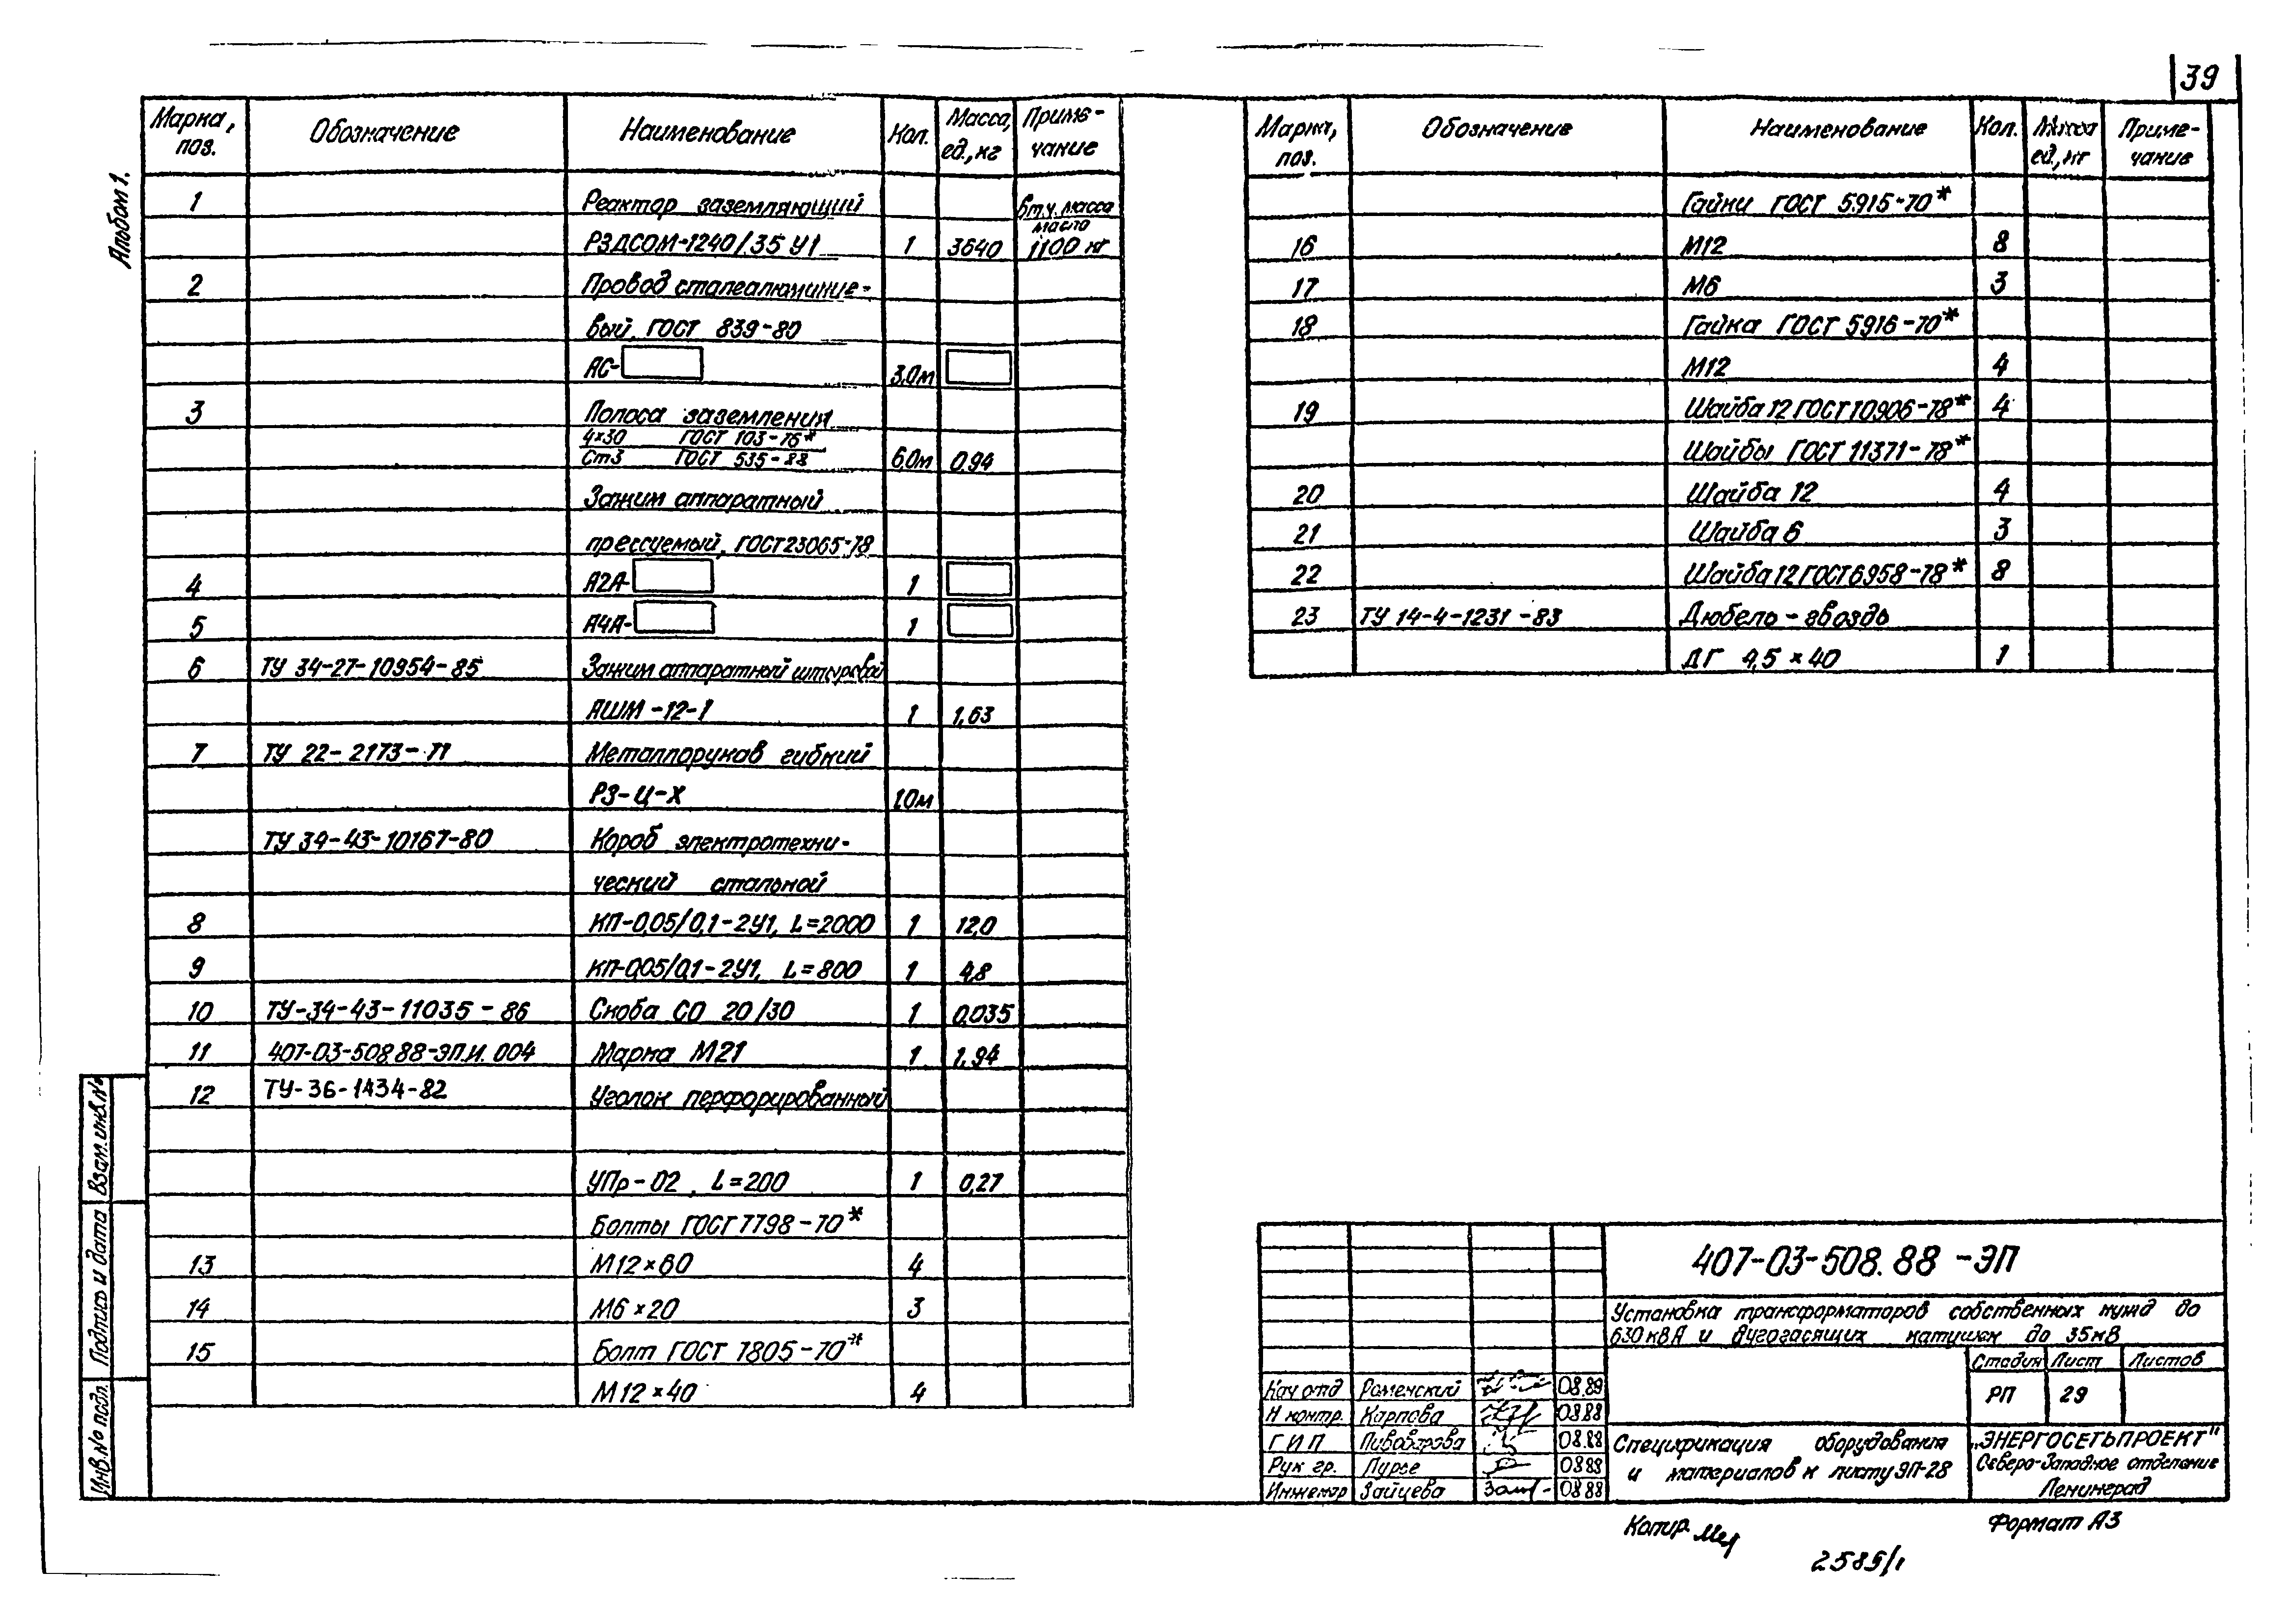 39
Альбом 1.
Марка, поз. Обозначение Наименование Кол. Масса, ед., кг Приме-чание
1 Реактор заземляющий вт.ч. масса масло
РЗДСОМ-1240/35 У1 1 3640 1100 кг
2 Провод сталеалюминие-
вый, ГОСТ 839-80
АС- 3,0м
3 Полоса заземления
4×30 ГОСТ 103-76*
Ст3 ГОСТ 535-88 6,0м 0,94
Зажим аппаратный
прессуемый, ГОСТ 23065-78
4 А2А- 1
5 А4А- 1
6 ТУ 34-27-10954-85 Зажим аппаратный штыревой
АШМ-12-1 1 1,63
7 ТУ 22-2173-71 Металлорукав гибкий
РЗ-Ц-Х 1,0м
ТУ 34-43-10167-80 Короб электротехни-
ческий стальной
8 КП-0,05/0,1-2У1, L=2000 1 12,0
9 КП-0,05/0,1-2У1, L=800 1 4,8
10 ТУ-34-43-11035-86 Скоба СО 20/30 1 0,035
11 407-03-508.88-ЭП.И.004 Марка М21 1 1,94
12 ТУ-36-1434-82 Уголок перфорированный
УПр-02, L=200 1 0,27
Болты ГОСТ 7798-70*
13 М12×60 4
14 М6×20 3
15 Болт ГОСТ 7805-70*
М12×40 4
Марка, поз. Обозначение Наименование Кол. Масса ед., кг Приме-чание
Гайки ГОСТ 5915-70*
16 М12 8
17 М6 3
18 Гайка ГОСТ 5916-70*
М12 4
19 Шайба 12 ГОСТ 10906-78* 4
Шайбы ГОСТ 11371-78*
20 Шайба 12 4
21 Шайба 6 3
22 Шайба 12 ГОСТ 6958-78* 8
23 ТУ 14-4-1231-83 Дюбель-гвоздь
ДГ 4,5×40 1
Взам. инв. №
Подпись и дата
Инв. № подл.
407-03-508.88-ЭП
Установка трансформаторов собственных нужд до
630 кВА и дугогасящих катушек до 35 кВ
Стадия Лист Листов
РП 29
Нач отд Роменский 08.89
Н контр. Карпова 08.88
ГИП Пивоварова 08.88
Рук гр. Пурсе 08.88
Инженер Зайцева 08.88
Спецификация оборудования
и материалов к листу ЭП-28
„ЭНЕРГОСЕТЬПРОЕКТ"
Северо-Западное отделение
Ленинград
Копир.
Формат А3
2585/1